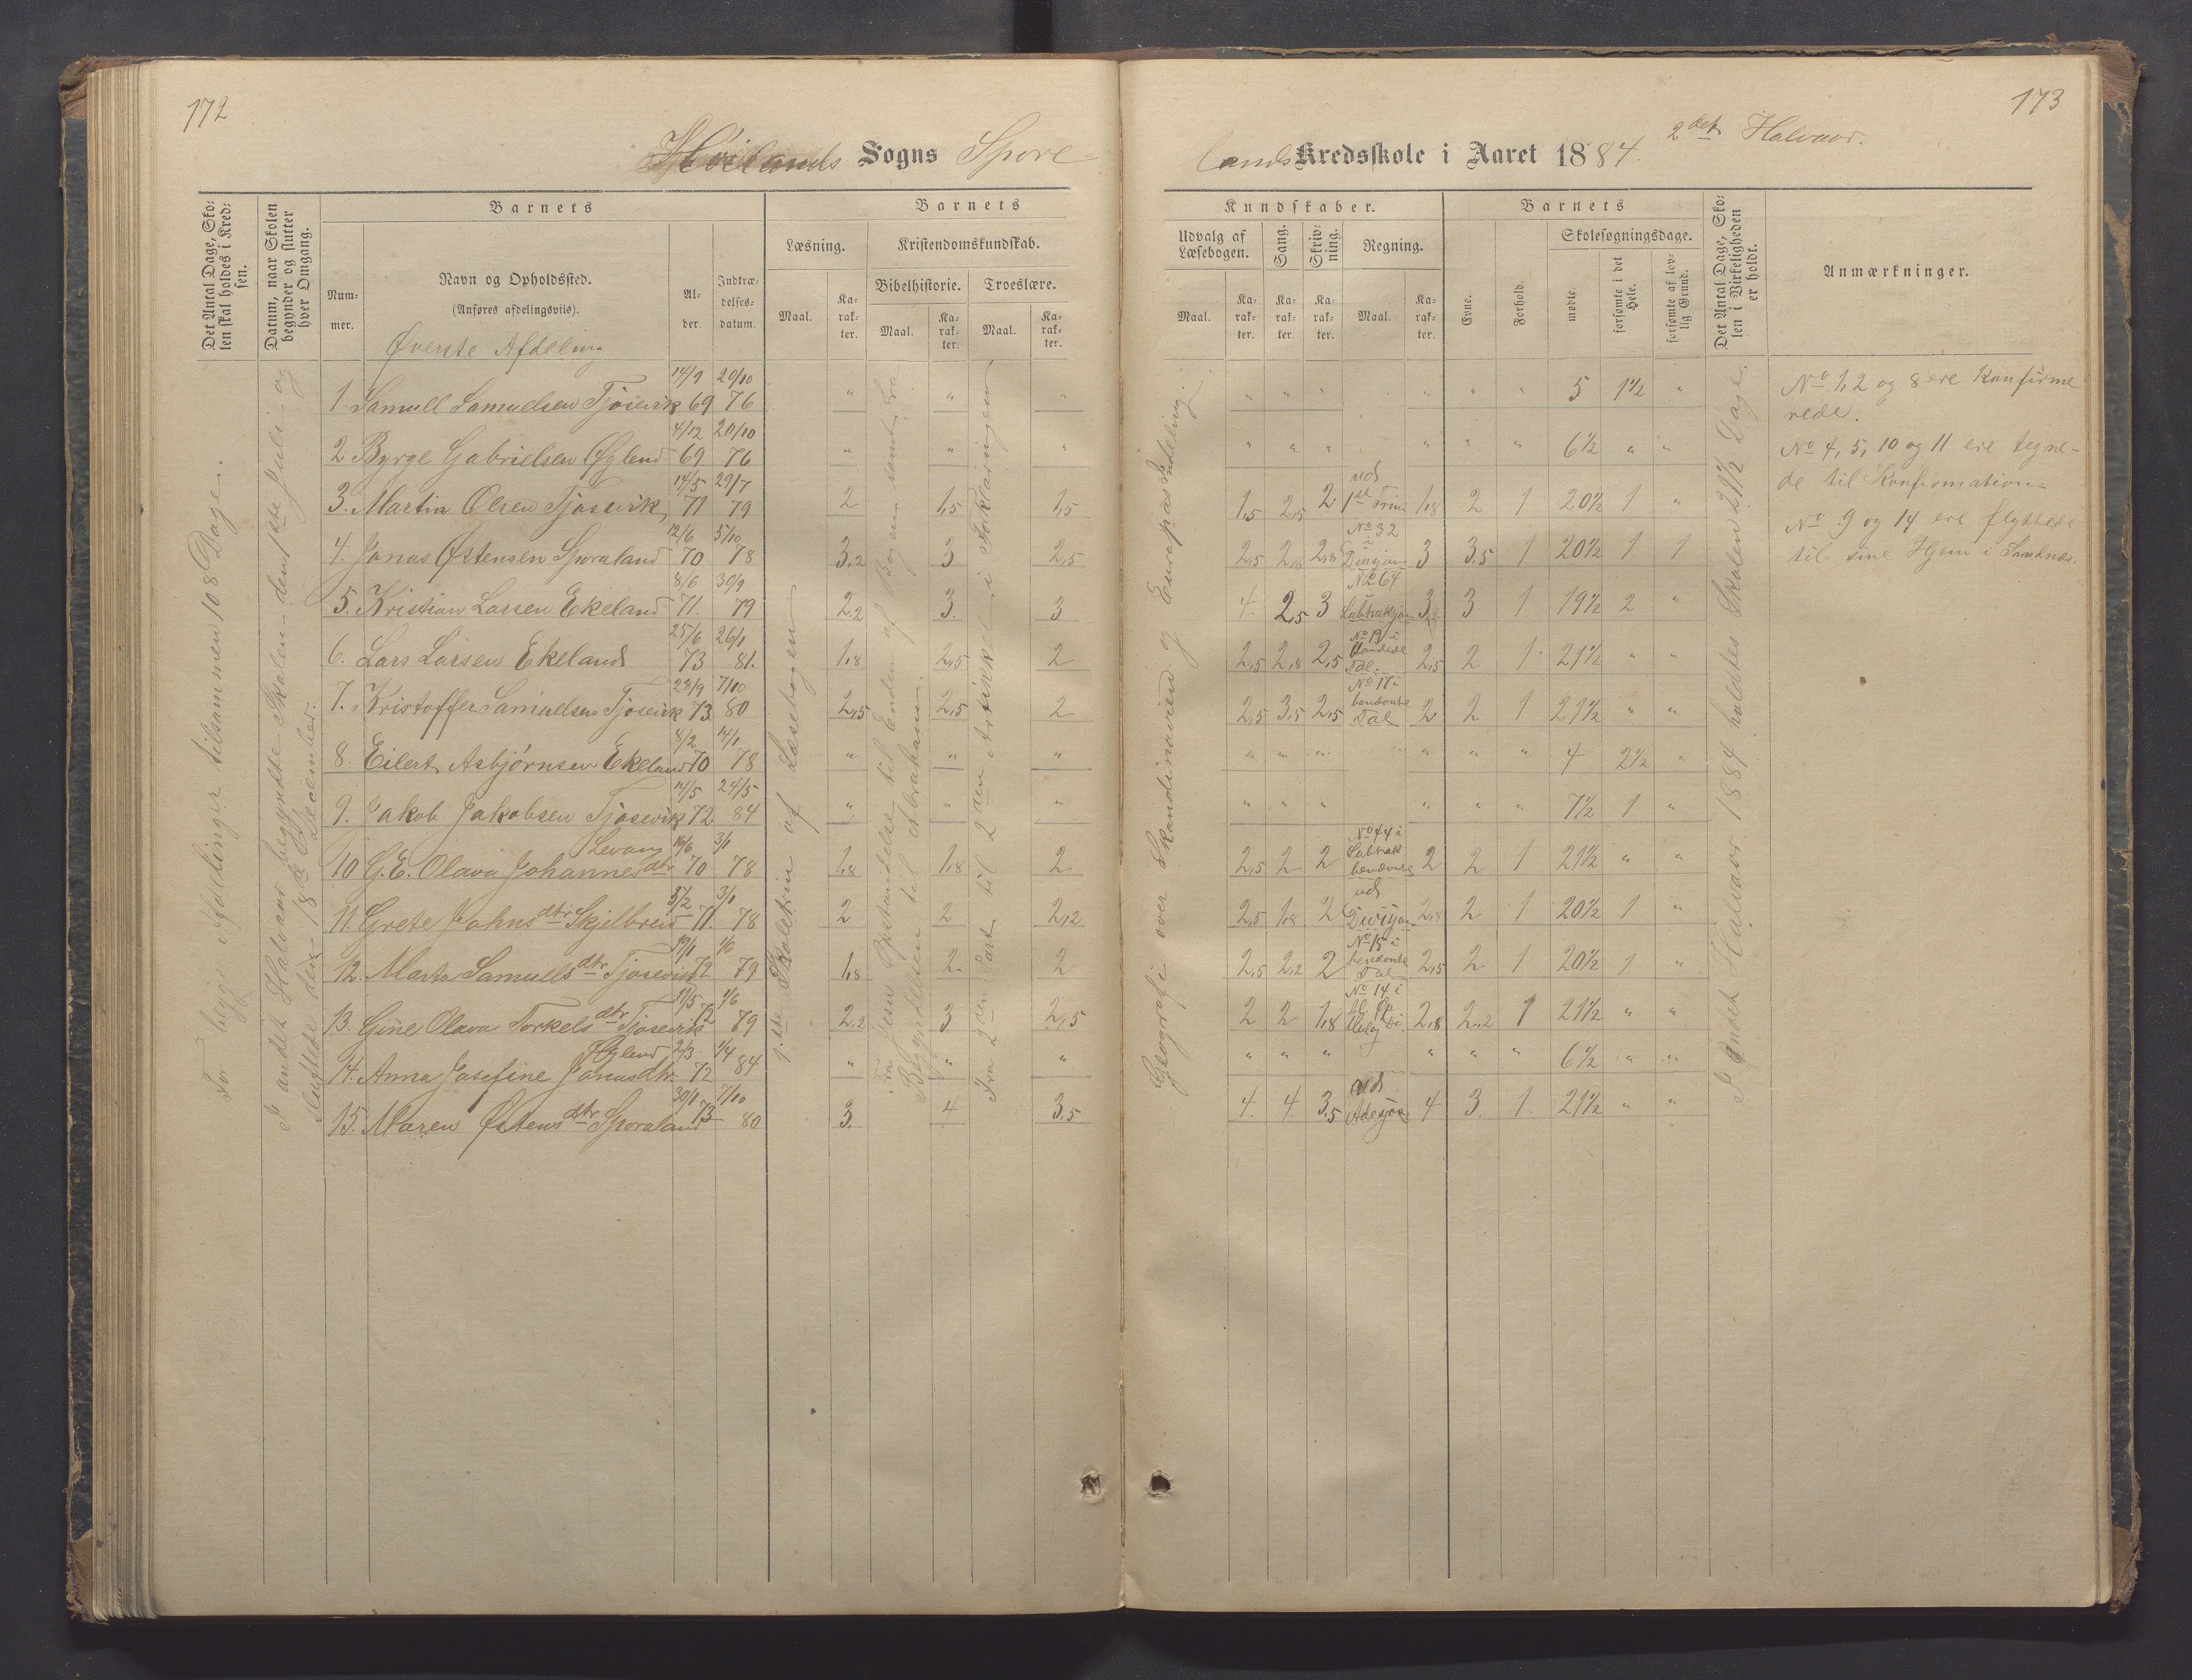 172
Høilands Sogns Spore-
Det Antal Dage, Sko-
len skal holdes i Kred-
sen.
Datum, naar Skolen
begynder og slutter
hver Omgang.
Barnets
Num-
mer.
Navn og Opholdssted.
(Anføres afdelingsvils).
Øverste Afdeling
Al-
der.
Indtræ-
delses-
datum.
Barnets
Læsning.
Maal.
Ka-
rak-
ter.
Kristendomskundskab.
Bibelhistorie.
Maal.
Ka-
rak-
ter.
Troeslære.
Maal.
Ka-
rak-
ter.
For begge Afdelinger tilsammen 108 Dage.
I andet Halvaar begyndte Skolen den 1ste Juli og
sluttede den 18de December.
1ste Skoletrin af Læsebogen
Fra Jesu Opstandelse til Enden af Bogen samt fra
Begyndelsen til Abraham.
Fra 2den Part til 2den Artikkel i Forklaringen
1. Samuel Samuelsen Tjosevik 14/9 69 20/10 76 " " "
2 Byrge Gabrielsen Øglend 4/12 69 20/10 76 " " "
3. Martin Olsen Tjosevik, 14/5 71 29/7 79 2 1,5 1,5
4. Jonas Østensen Sporaland 12/6 70 5/10 78 3,2 3 2,5
5. Kristian Larsen Ekeland 8/6 71. 30/9 79 2,2 3. 3
6. Lars Larsen Ekeland 25/6 73 26/1 81. 1,8 2,5 2
7. Kristoffer Samuelsen Tjosevik 23/9 73 7/10 80 2,5 2,5 2
8. Eilert Asbjørnsen Ekeland 8/2 70 14/1 78 " " "
9. Jakob Jakobsen Tjosevik 14/5 72 24/5 84 " " "
10 G.E. Olava Johannesdtr 70 3/1 78 1,8 1,8 2
11. Grete Johnsdtr Skjelbreid 5/2 71. 3/1 78 2 2 2,2
12. Marta Samuelsdtr Tjosevik 19/1 72 1/6 79 1,8 2. 2
13. Gine Olava Torkelsdtr Tjosevik 17/5 72 1/6 79 2,2 3 2,5
Øglend
14. Anna Josefine Jonasdtr 2/3 72 1/4 84 " " "
15. Maren Østensdtr Sporaland 30/1 73 7/10 80 3. 4 3,5
173
lands Kredsskole i Aaret 1884. 2det Halvaar.
Kundskaber.
Udvalg af
Læsebogen.
Maal.
Ka-
rak-
ter.
Sang.
Ka-
rak-
ter.
Skriv-
ning.
Ka-
rak-
ter.
Regning.
Maal.
Ka-
rak-
ter.
Barnets
Evne.
Forhold.
Skolesøgningsdage.
mødte.
forsømte i det
Hele.
forsømte af lov-
lig Grund.
Det Antal Dage, Sko-
len i Virkeligheden
er holdt.
Anmærkninger.
Geografi over Skandinavien og Europas Inddeling.
I andet Halvaar 1884 holdtes Skolen 21½ Dage.
" " " " " " 5 1½ "
" " " " " " 6½ " "
1,5 2,5 2 ud 1ste Trin 1,8 2 1 20½ 1 "
2,5 2,8 2,8 No 32 i Divisjon 3 3,5 1 20½ 1 1
4. 2,5 3 No 64 Subtraksjon 3,2 3 1 19½ 2 "
2,5 2,8 2,5 No 19 i Tal. 2,5 2 1 21½ " "
2,5 3,5 2,5 No 17 i benævnte Tal 2 2 1 21½ " "
" " " " " " 4 2½ "
" " " " " " 7½ 1 "
2,5 2 2 No 44 i Subtrak benævnte 2 2 1 21½ " "
2,5 1,8 2 ud Divisjon 2,8 2 1 20½ 1 "
2,5 2,2 2 No 15 i benævnte Tal 2,5 2 1 20½ 1 "
2 2 1,8 No 14 i 2,8 2,2 1 21½ " "
" " " " " " 6½ " "
4. 4. 3,5 ud Adisjon 4 3. 1. 21½ " "
No 1, 2 og 8 ere Konfirme
rede.
No 4, 5, 10 og 11 ere tegne-
de til Konfirmation
No 9 og 14 ere flyttede
til sine Hjem i Sandnæs.